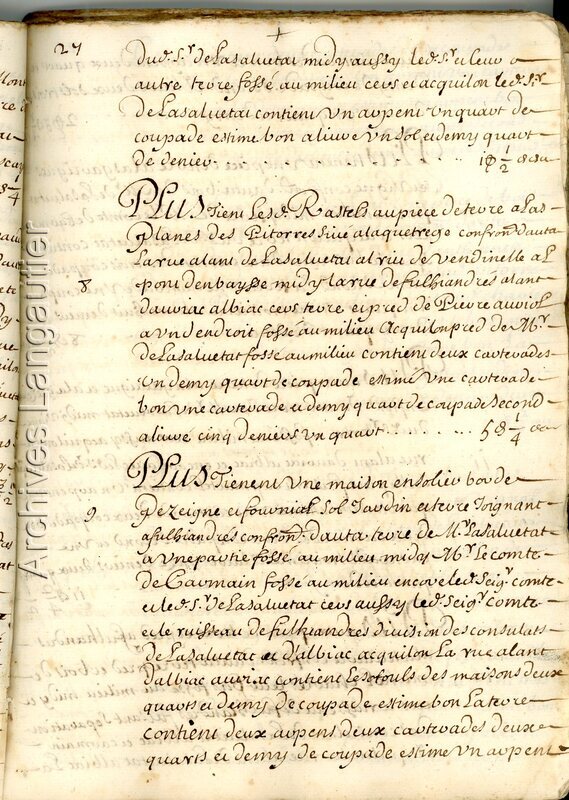 27
dud. Sr. de Lasalvetat midy aussy led. Sr. et leur
autre terre fossé au milieu cers et acquilon led. Sr.
de Lasalvetat contient un arpent un quart de
coupade estime bon alivre un sol et demy quart
de denier . . . . . . . . . . 1 1/2
PLUS tient les d. Rastels au piece de terre a Las
planes des Pitorres sive alaquetrege confron. d'auta
la rue alant de Lasalvetat al riu de Vendinelle al
8
pont denbaysse midy la rue de fulhiandrés alant
d'auriac albiac cers terre et pred de Pierre auriol
a un dendroit fossé au milieu Acquilon pred de Mr.
de Lasalvetat fossé au milieu contient deux carterades
un demy quart de coupade estimé une carterade
bon une carterade et demy quart de coupade second
alivré cinq deniers un quart . . . . . . . . 5 1/4
PLUS tienent une maison en solier borde
9
pezeigne et fournial sol Jardin et terre joignant
a fulhiandrés confron. d'auta terre de Mr. Lasalvetat
a une partie fossé au milieu midy Mr. Le comte
de Carmain fossé au milieu encore led. seigr. comte
et led. Sr. de Lasalvetat cers aussy led. seigr. comte
et le ruisseau de fulhiandrés division des consulats
de Lasalvetat et d'albiac, acquilon La rue alant
d'albiac auriac contient les sols des maisons deux
quarts et demy de coupade, estime bon La terre
contient deux arpens deux carterades deux
quarts et demy de coupade estime un arpent
Archives Langautier